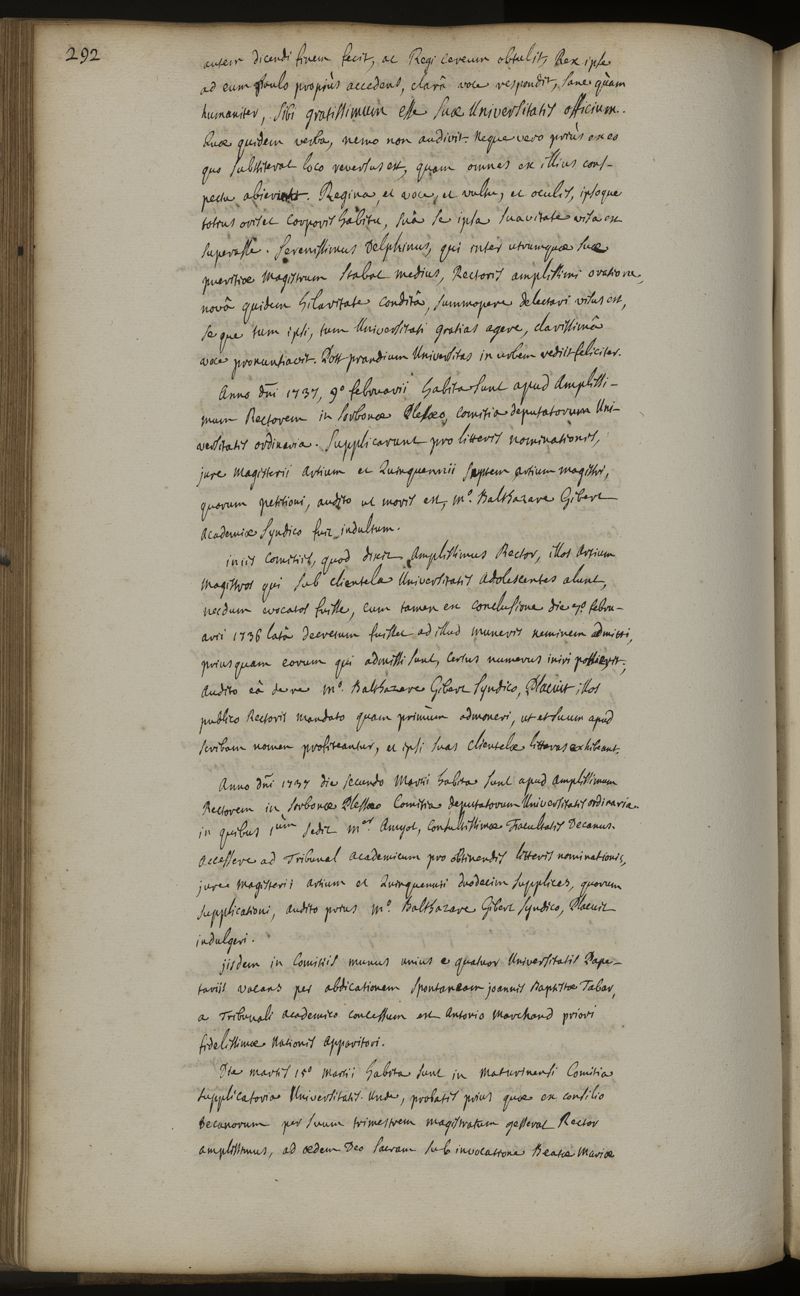 292
autem dicendi finem fecit, ac Regi cereum obtulit, Rex ipse
ad eum paulo propiùs accedens, clarâ voce respondit, sane quàm
humaniter, sibi gratissimum esse suæ Universitatis officium.
Quæ quidem verba, nemo non audivit. Neque vero priùs ex eo
quo substiterat loco reversus est, quam omnes ex illius cons-
pectu abierint. Regina et voce, et vultu, et oculis, ipsoque
totius oris et corporis habitu, suâ se ipsa suavitate visa est
superasse. Serenissimus Delphinus, qui inter utrumque suæ
pueritiæ Magistrum stabat medius, Rectoris amplissimi oratione,
novâ quidem hilaritate conditâ, summopere delectari visus est,
seque tum ipsi, tum Universitati gratias agere, clarissimâ
voce pronuntiavit. Post prandium Universitas in urbem rediit feliciter.
Anno dni 1737, 9º februarii habita sunt apud Amplissi-
mum Rectorem in Sorbonæ Plessæo, comitia deputatorum Uni-
versitatis ordinaria. Supplicarunt pro litteris nominationis,
jure Magisterii Artium et Quinquennii septem artium magistri,
quorum petitioni, audito ut moris est, mº. Balthazare Gibert
Academiæ Syndico fuit indultum.
in iis Comitiis, quod dixit Amplissimus Rector, illos Artium
Magistros qui sub clientela Universitatis Adolescentes alunt,
necdum evocatos fuisse, cum tamen ex conclusione die 7ª febru-
arii 1736 latâ decretum fuisset ad illud muneris neminem admitti,
priusquam eorum qui admissi sunt, certus numerus iniri
Audito eâ de re mº. Balthazare Gibert Syndico, Placuit illos
publico Rectoris mandato quam primùm admoneri, ut et suum apud
scribam nomen profiteantur, et ipsi suas clientelæ litteras exhibeant.
Anno dni 1737 die secundo Martii habita sunt apud Amplissimum
Rectorem in Sorbonæ Plessæo Comitia deputatorum Universitatis ordinaria.
in quibus 1ùm sedit mer Amyot, Consultissimæ Facultatis Decanus.
Accessere ad Tribunal academicum pro obtinendis litteris nominationis,
jure Magisterii artium et Quinquennii duodecim supplices, quorum
supplicationi, audito prius mº. Balthazare Gibert Syndico, Placuit
indulgeri.
jisdem in Comitiis munus unius e quatuor Universitatis Pape-
tariis vacans per abdicationem spontaneam joannis Baptistæ Tabar,
a Tribunali academico concessum est Antonio Marchand priori
fidelissimæ Nationis Apparitori.
Die martis 15º Martii habita sunt in Maturinensi Comitia
supplicatoria Universitatis. Unde, probatis prius quæ ex consilio
Decanorum per suum trimestrem magistratum gesserat Rector
amplissimus, ad ædem Deo sacram sub invocatione Beatæ Mariæ